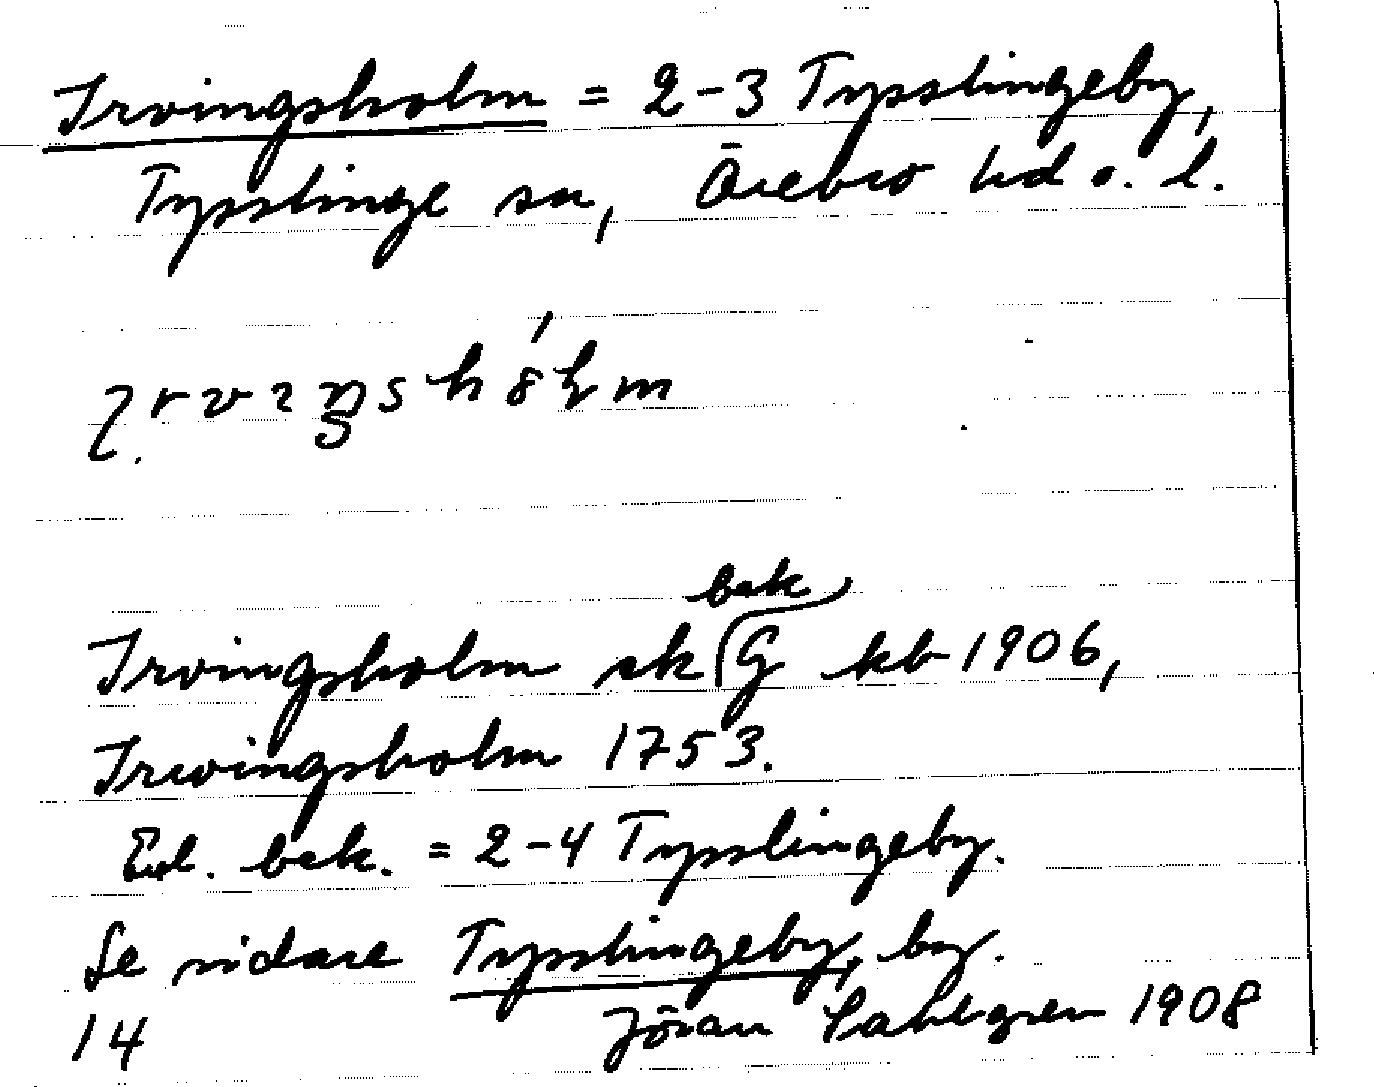 Irvingsholm = 2-3 Tysslingeby,
Tysslinge sn, Örebro hd o. l.
bak
Irvingsholm sk G kb 1906,
Irwingsholm 1753.
Enl. bek. = 2-4 Tysslingeby.
Se vidare Tysslingeby, by.
14 Jöran Sahlgren 1908